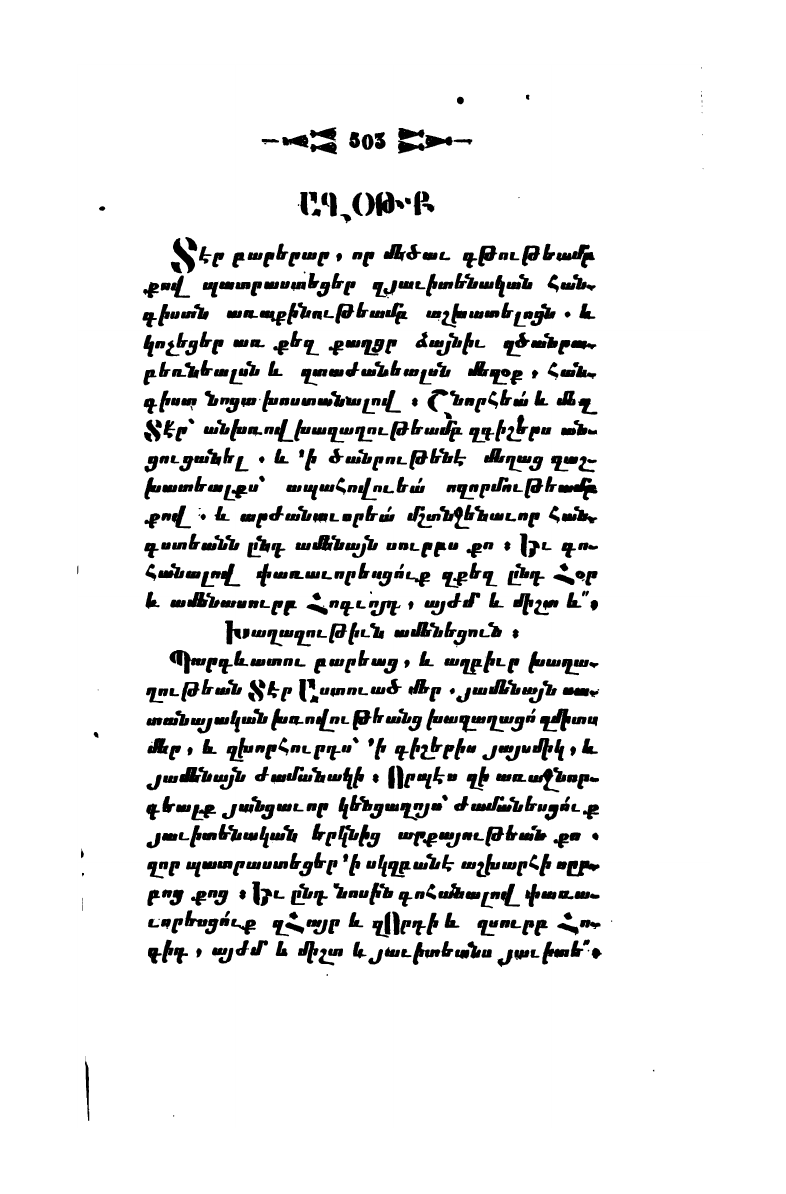 503
ԱՂՕԹՔ
Տէր բարերար, որ մեծաւ գթութեամբ
քով պատրաստեցեր զյաւիտենական հան-
գիստն առաքինութեամբ աշխատելոցն. և
կոչեցեր առ քեզ քաղցր ձայնիւ զծանրա-
բեռնեալսն և զտաժանեալսն մեղօք, հան-
գիստ նոցա խոստանալով։ Շնորհեա՛ և մեզ
Տէր՝ անխռով խաղաղութեամբ զգիշերս ան-
ցուցանել. և ՚ի ծանրութենէ մեղաց զաշ-
խատեալքս՝ ապահովուեա՛ ողորմութեամբ
քով. և արժանաւորեա՛ մշտնջենաւոր հան-
գստեանն ընդ ամենայն սուրբս քո։ Եւ գո-
հանալով փառաւորեսցո՛ւք զքեզ ընդ Հօր
և ամենասուրբ Հոգւոյդ, այժմ և միշտ և՛՛։
Խաղաղութիւն ամենեցուն։
Պարգևատու բարեաց, և աղբիւր խաղա-
ղութեան Տէր Աստուած մեր. յամենայն սա-
տանայական խռովութեանց խաղաղացո՛ զմիտս
մեր, և զխորհուրդս՝ ՚ի գիշերիս յայսմիկ, և
յամենայն ժամանակի։ Որպէս զի առաջնոր-
գեալք յանցաւոր կենցաղոյս՝ ժամանեսցո՛ւք
յաւիտենական երկնից արքայութեան քո.
զոր պատրաստեցեր ՚ի սկզբանէ աշխարհի սըր-
բոց քոց։ Եւ ընդ նոսին գոհանալով փառա-
ւորեսցո՛ւք զՀայր և զՈրդի և զսուրբ Հո-
գիդ, այժմ և միշտ և յաւիտեանս յաւիտե՛՛։